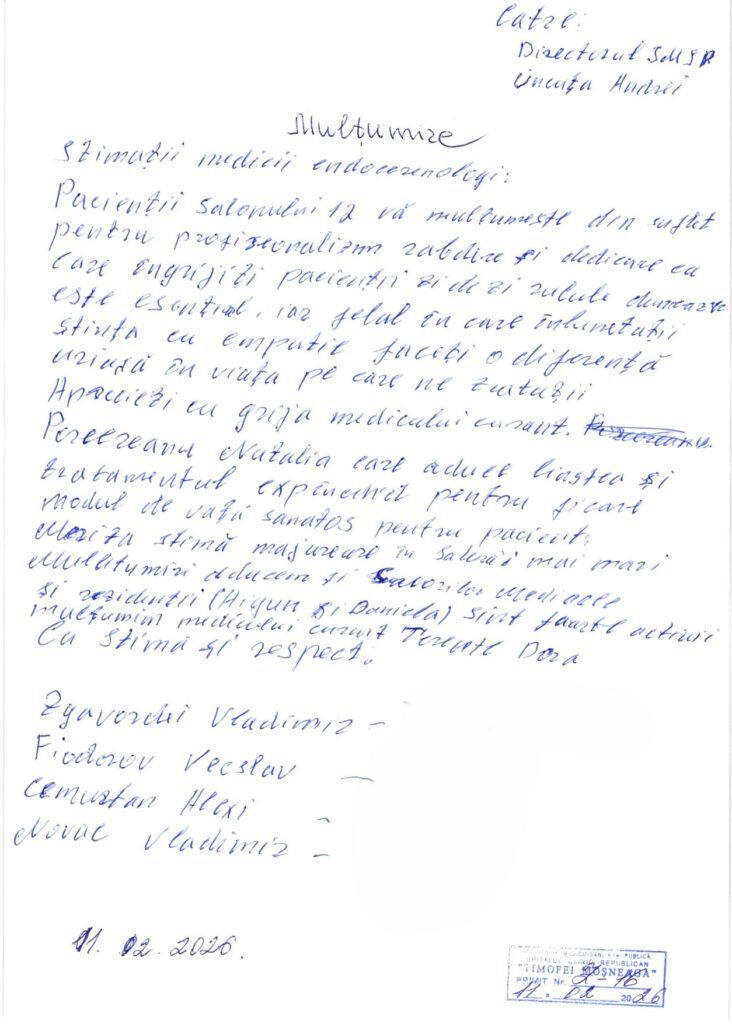 Catre:
Directorul SMSR
Uncuța Andrei
Mulțumire
Stimații medicii endocerenologi:
Pacienții Salonului 12 vă multumește din suflet
pentru profisionalizm rabdire și dedicare cu
care îngrijiți pacienții zi de zi
este esențial, iar felul în care
ștința cu empatie faceți o diferență
uriașă în viața pe care ne tratații
Apreciezi cu grija medicului curant.
Natalia care aduce liniștea și
tratamentul pentru ficare
modul de vață sanatos pentru pacient.
Merita stimă majureare cu salarii mai mari
Multumiri aducem și Surorilor Medicale
și rezidentii (Higun și Daniela) sint foarte activii
mulțumim medicului curant Terente Dora
Cu stimă și respect.
Zgavordei Vladimir –
Fiodorov Vecslav –
Cemurtan Alexi –
Novac Vladimir –
11. 02. 2026.
INSTITUȚIA MEDICO-SANITARĂ PUBLICĂ
SPITALUL CLINIC REPUBLICAN
"TIMOFEI MOȘNEAGA"
PRIMIT Nr. 2-16
11 . 02 2026